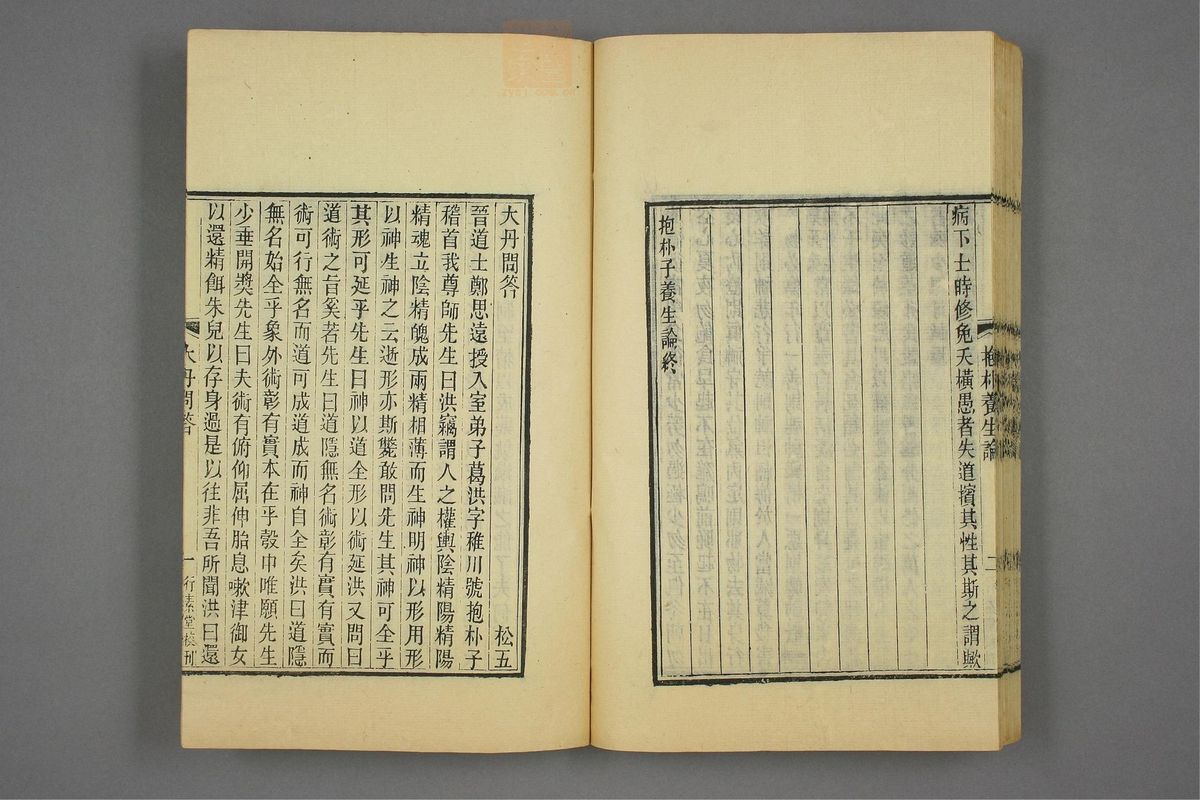 病下士時修免夭橫愚者失道擯其性其斯之謂歟
抱朴子養生論終
抱朴養生論
二
大丹問答
松五
晉道士鄭思遠授入室弟子葛洪字稚川號抱朴子
稽首我尊師先生曰洪竊謂人之權輿陰精陽精陽
精魂立陰精魄成兩精相薄而生神明神以形用形
以神生神之云逝形亦斯斃敢問先生其神可全乎
其形可延乎先生曰神以道全形以術延洪又問曰
道術之旨奚若先生曰道隱無名術彰有實有實而
術可行無名而道可成道成而神自全矣洪曰道隱
無名始全乎象外術彰有實本在乎彀中唯願先生
少垂開奬先生曰夫術有俯仰屈伸胎息嗽津御女
以還精餌朱兒以存身過是以往非吾所聞洪曰還
大丹問答
一
行素堂校刊